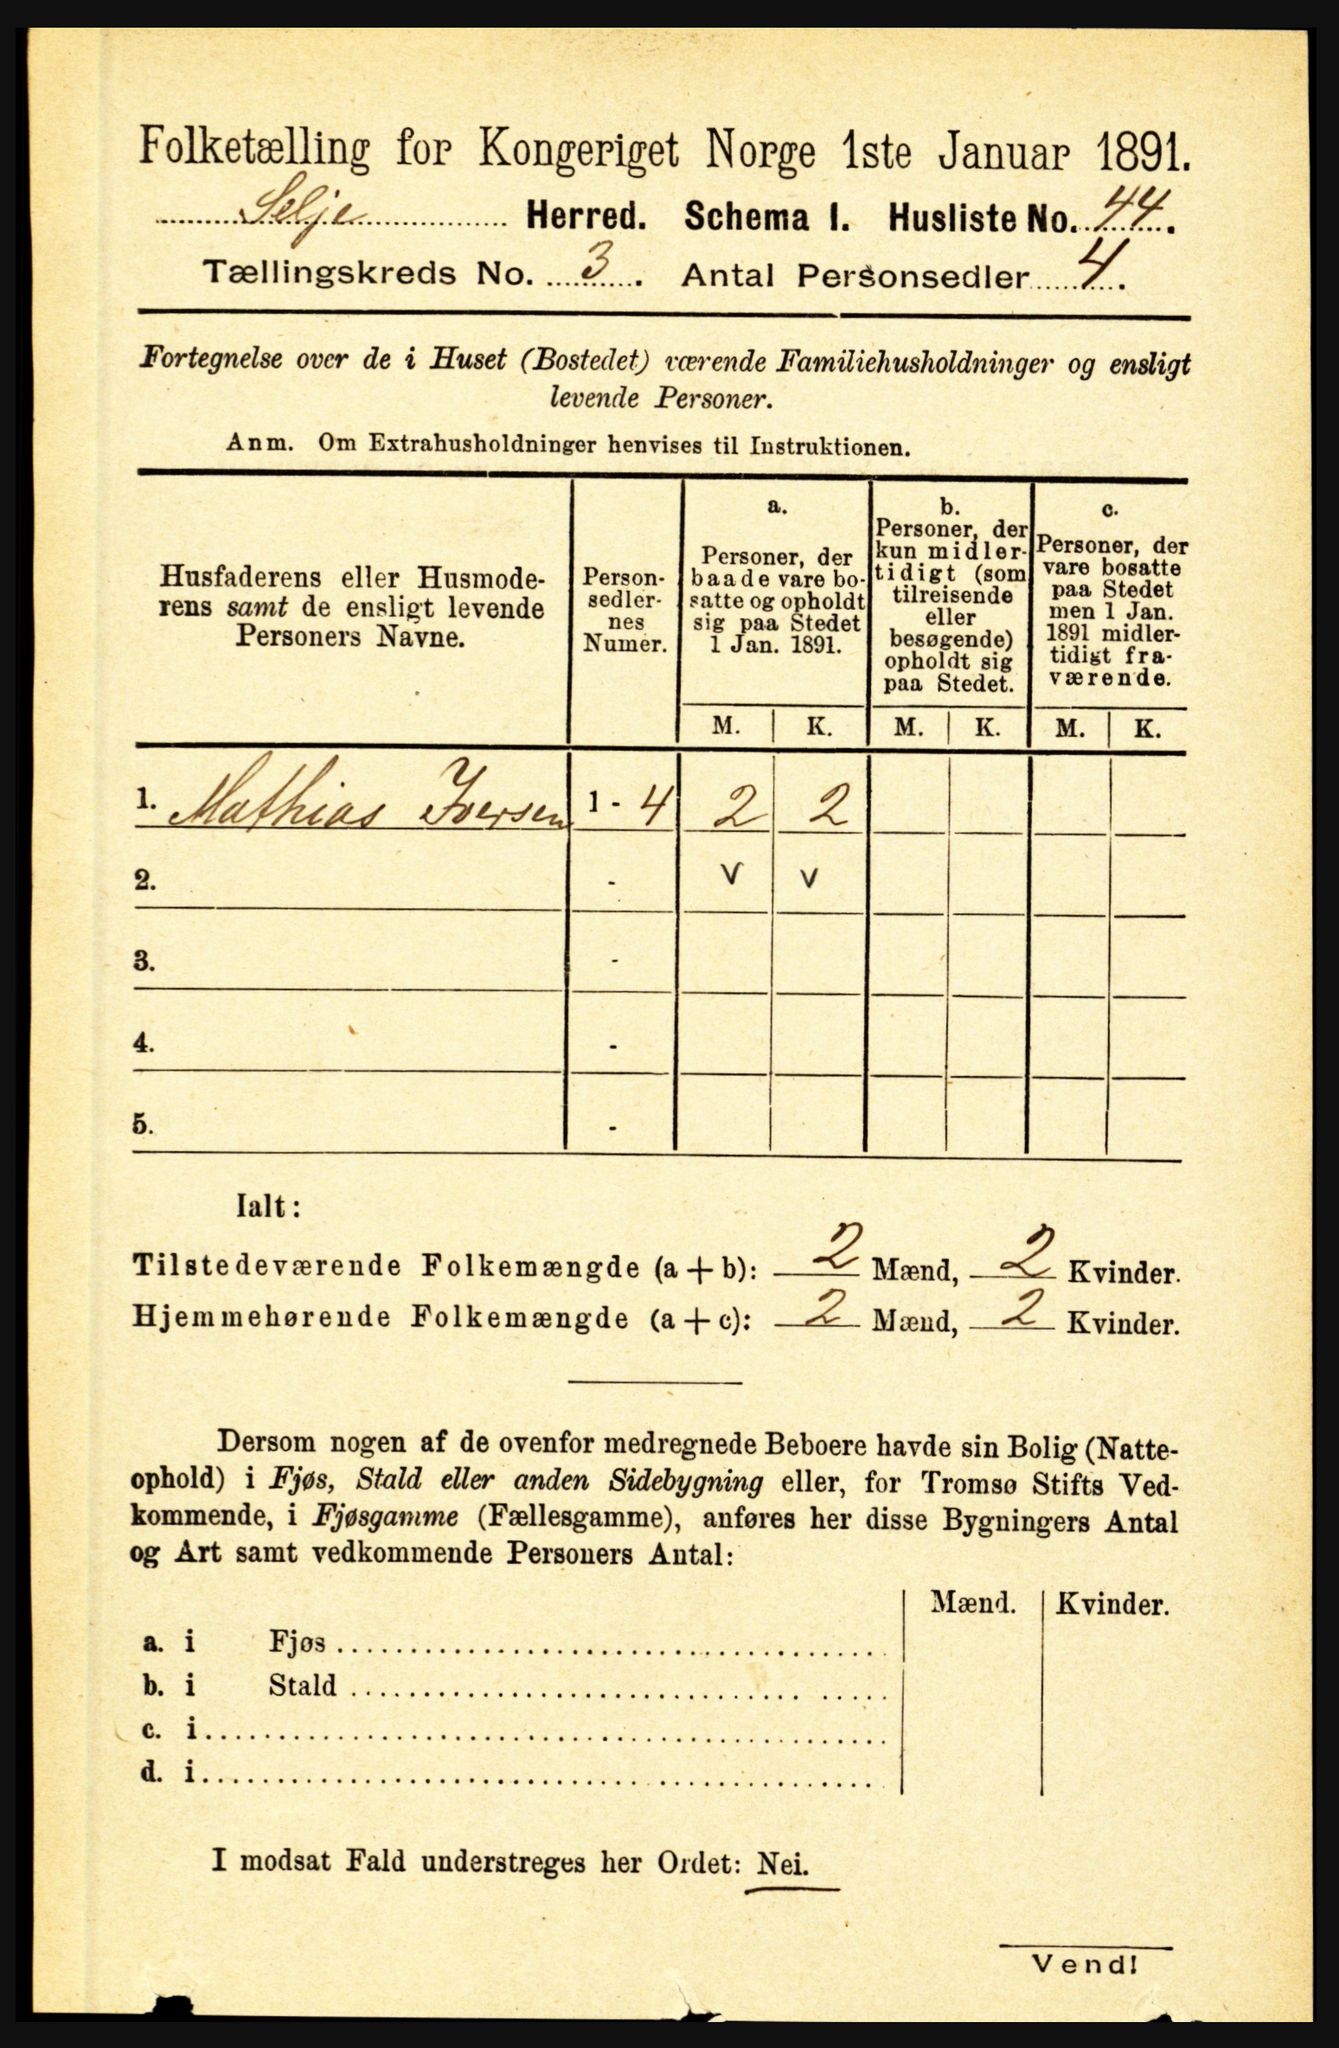 Folketælling for Kongeriget Norge 1ste Januar 1891.
Selje Herred. Schema I. Husliste No. 44.
Tællingskreds No. 3. Antal Personsedler 4.
Fortegnelse over de i Huset (Bostedet) værende Familiehusholdninger og ensligt
levende Personer.
Anm. Om Extrahusholdninger henvises til Instruktionen.
Husfaderens eller Husmode-
rens samt de ensligt levende
Personers Navne.
Person-
sedler-
nes
Numer.
a.
Personer, der
baade vare bo-
satte og opholdt
sig paa Stedet
1 Jan. 1891.
b.
Personer, der
kun midler-
tidigt (som
tilreisende
eller
besøgende)
opholdt sig
paa Stedet.
c.
Personer, der
vare bosatte
paa Stedet
men 1 Jan.
1891 midler-
tidigt fra-
værende.
M. K. M. K. M. K.
1. Mathias Iversen 1 - 4 2 2
2. - v v
3. -
4. -
5. -
Ialt:
Tilstedeværende Folkemængde (a + b): 2 Mænd, 2 Kvinder.
Hjemmehørende Folkemængde (a + c): 2 Mænd, 2 Kvinder.
Dersom nogen af de ovenfor medregnede Beboere havde sin Bolig (Natte-
ophold) i Fjøs, Stald eller anden Sidebygning eller, for Tromsø Stifts Ved-
kommende, i Fjøsgamme (Fællesgamme), anføres her disse Bygningers Antal
og Art samt vedkommende Personers Antal:
Mænd. Kvinder.
a. i Fjøs
b. i Stald
c. i
d. i
I modsat Fald understreges her Ordet: Nei.
Vend!